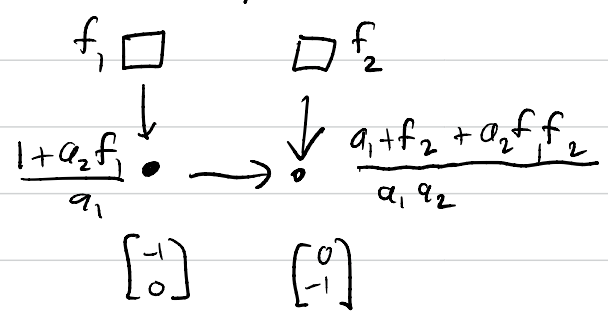 f_1 □ □ f_2
↓ ↓
\frac{1+a_2f_1}{a_1} • → ∘ \frac{a_1+f_2+a_2f_1f_2}{a_1a_2}
\begin{bmatrix}-1\\0\end{bmatrix} \begin{bmatrix}0\\-1\end{bmatrix}